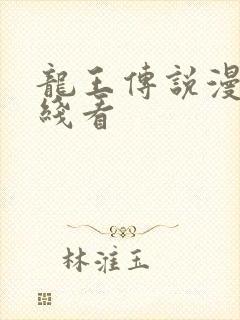 龍王傳說漫
綫看
林淮玉